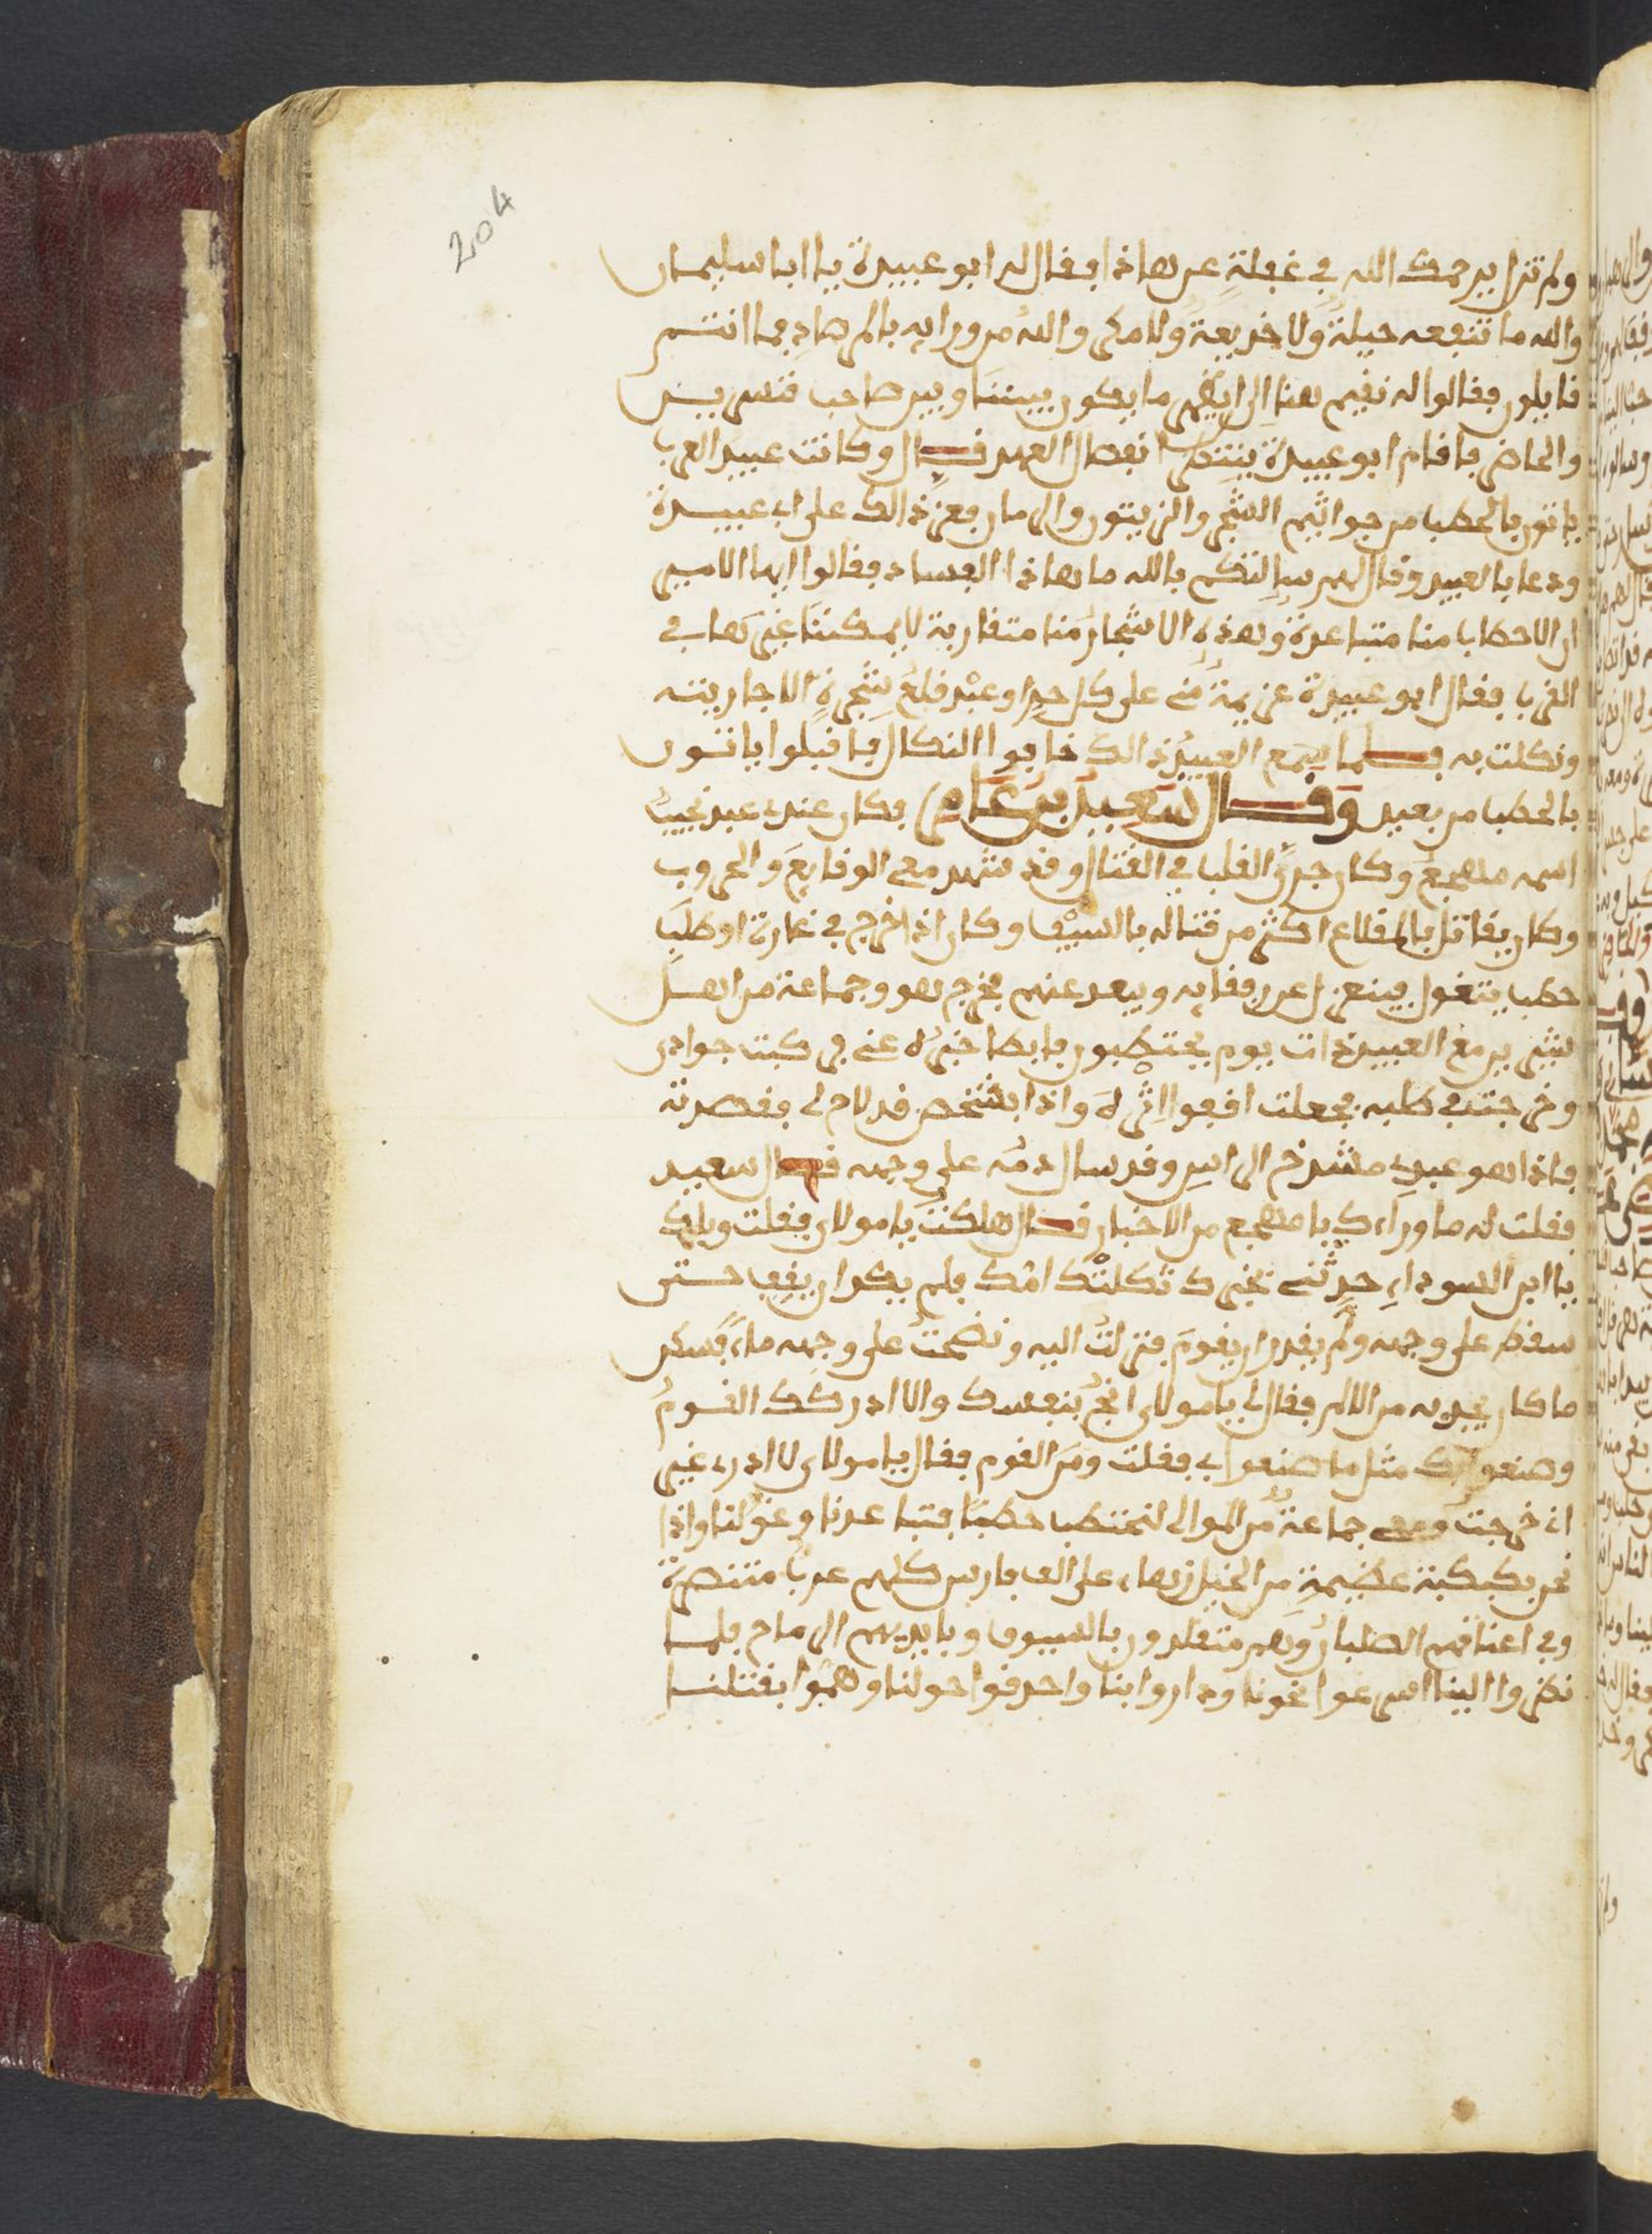 204
ولم تزل يرحمك الله في غفلة عن هاذا فقال له ابو عبيدة يا ابا سليمان
والله ما تنفعه حيلة ولا خديعة ولا مكر والله من ورايه بالمرصاد فما انتم
قايلون فقالوا له نقيم هنا الى ان يظهر ما يكون بيننا وبين صاحب قنسرين
والحاضر فاقام ابو عبيدة ينتظر انفصال العهد قال وكانت عبيد العرب
ياتون بالحطب من جوانبهم الشجر والزيتون والرمان فعز ذالك على ابي عبيدة
ودعا بالعبيد وقال لهم سالتكم بالله ما هاذا الفساد فقالوا ايها الامير
ان الاحطاب منا متباعدة وهذه الاشجار منا متقاربة لا يمكننا غيرها في
القرب فقال ابو عبيدة عزيمة مني على كل حر او عبد قلع شجرة الا جازيته
ونكلت به فلما سمع العبيد ذالك خافوا النكال فاقبلوا ياتون
بالحطب من بعيد وقال سعيد بن عامر فكان عندي عبد نجيب
اسمه مهجع وكان جرئ القلب في القتال وقد شهد معي الوقايع والحروب
وكان يقاتل بالمقلاع اكثر من قتاله بالسيف وكان اذا خرج في غارة او طلب
حطب يتغول فينعزل عن رفقايه ويبعد عنهم فخرج هو وجماعة من اهل
شيزر مع العبيد ذات يوم يحتطبون فابطا خبره عني فركبت جوادي
وخرجت في طلبه فجعلت اقفوا اثره واذا بشخص قد لاح لي فقصدته
فاذا هو عبدي مشدخ الراس وقد سال دمه على وجهه قال سعيد
فقلت له ما وراءك يا مهجع من الاخبار قال هلكت يا مولاي فقلت ويلك
يا ابن السوداء حدثني بخبرك ثكلتك امك فلم يكد ان يقف حتى
سقط على وجهه ولم يقدر ان يقوم فنزلت اليه ونضحت على وجهه ماء فسكن
ما كان يجد به من الالم فقال لي يا مولاي انج بنفسك والا ادركك القوم
وصنعوا بك مثل ما صنعوا بي فقلت ومن القوم فقال يا مولاي لا ادري غير
اني خرجت ومعي جماعة من الموالي لنحتطب حطبا فتباعدنا وغولنا واذا
نحن بكبكبة عظيمة من الخيل زهاء على الف فارس كلهم عربا متنصرة
وفي اعناقهم الصلبان وهم متقلدون بالسيوف وبايديهم الرماح فلما
نظروا الينا اسرعوا نحونا وداروا بنا واحدقوا حولنا وهموا بقتلنا